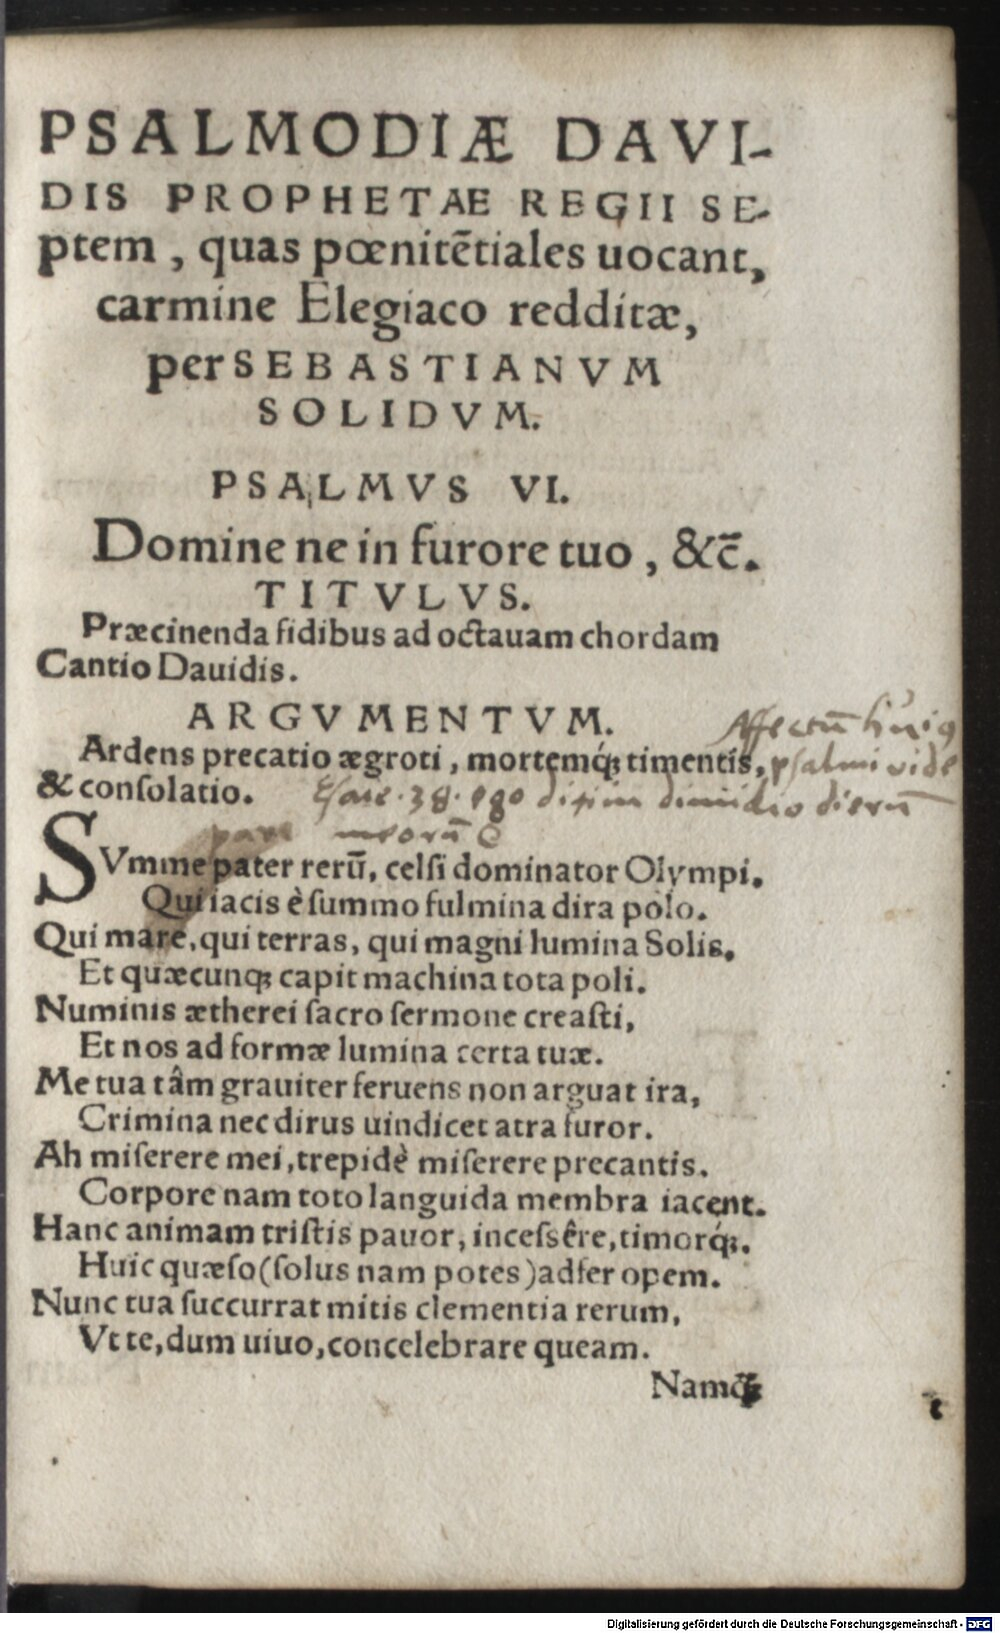 PSALMODIÆ DAVI-
DIS PROPHETAE REGII SE-
ptem, quas pœnitẽtiales uocant,
carmine Elegiaco redditæ,
per SEBASTIANVM
SOLIDVM.
PSALMVS VI.
Domine ne in furore tuo, &c̃.
TITVLVS.
Præcinenda fidibus ad octauam chordam
Cantio Dauidis.
ARGVMENTVM.
Affectū huiꝰ
Ardens precatio ægroti, mortemq́ꝫ timentis, psalmi vide
& consolatio. Esaie .38. ego dixi in dimidio dierū
meorū
SVmme pater rerū, celsi dominator Olympi.
Qui iacis è summo fulmina dira polo.
Qui mare, qui terras, qui magni lumina Solis.
Et quæcunqꝫ capit machina tota poli.
Numinis ætherei sacro sermone creasti,
Et nos ad formæ lumina certa tuæ.
Me tua tâm grauiter feruens non arguat ira,
Crimina nec dirus uindicet atra furor.
Ah miserere mei, trepidè miserere precantis.
Corpore nam toto languida membra iacent.
Hanc animam tristis pauor, incessêre, timorq́ꝫ.
Huic quæso (solus nam potes) adfer opem.
Nunc tua succurrat mitis clementia rerum,
Vt te, dum uiuo, concelebrare queam.
Namqꝫ
Digitalisierung gefördert durch die Deutsche Forschungsgemeinschaft - DFG